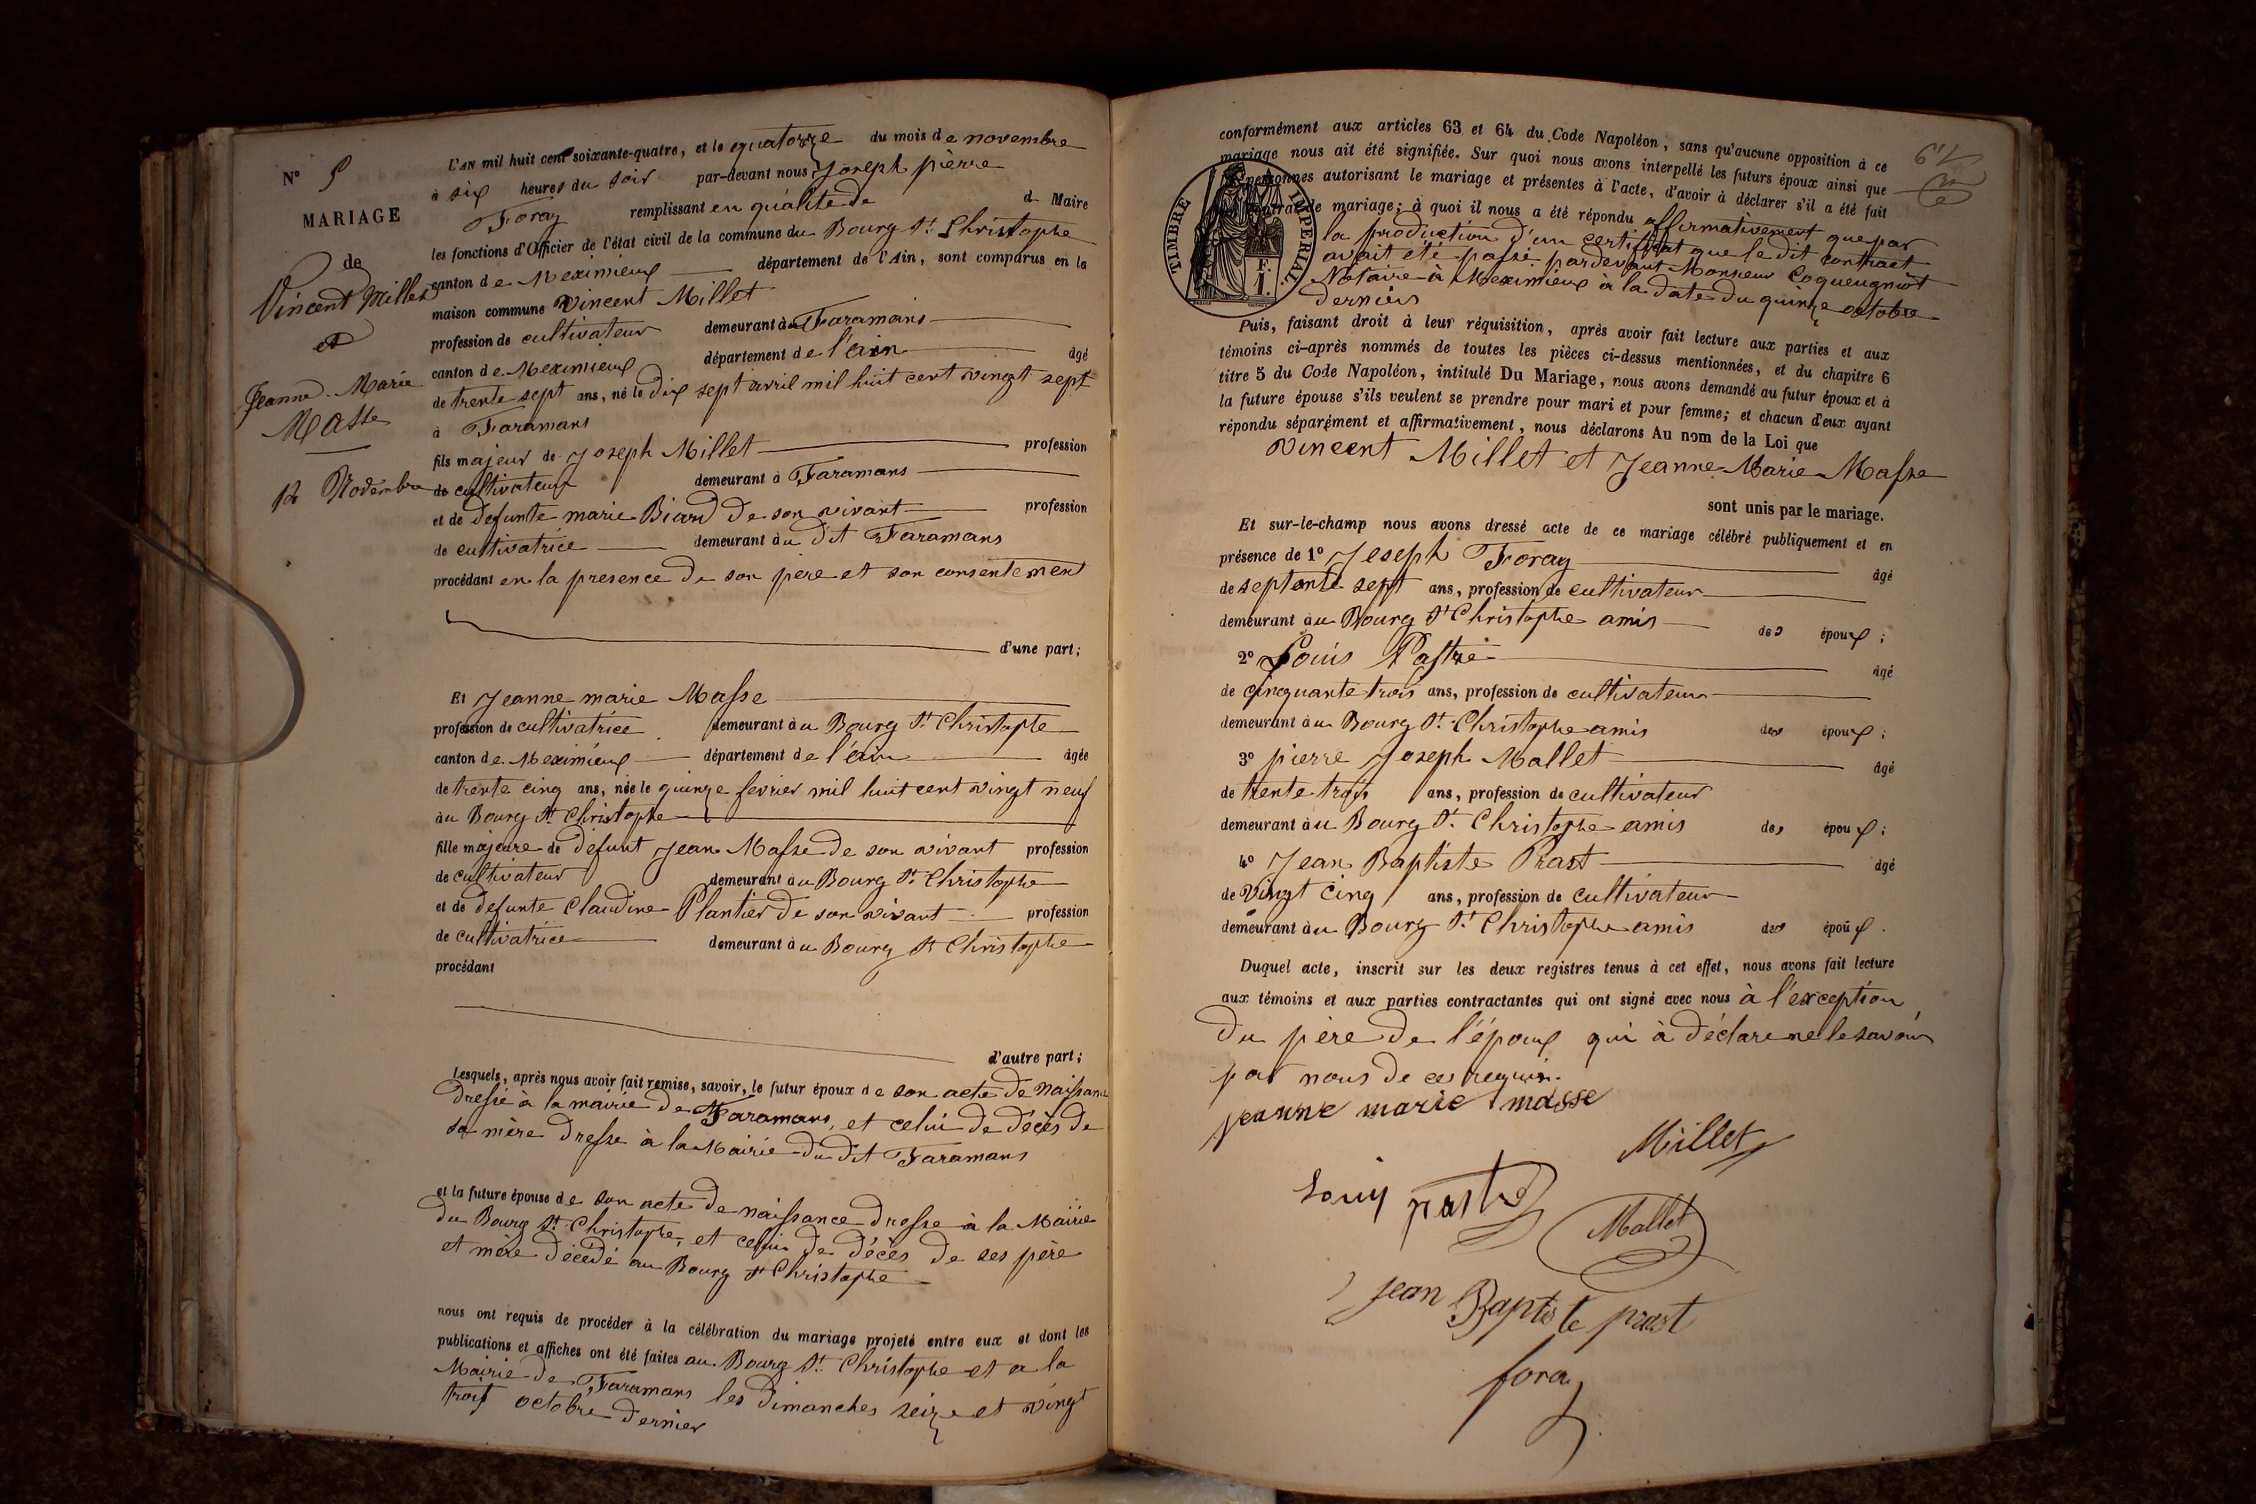 N° 5
MARIAGE
de
Vincent Millet
et
Jeanne Marie
Masse
14 Novembre
L'AN mil huit cent soixante-quatre, et le quatorze du mois de novembre
à six heures du soir par-devant nous Joseph pierre
Foray remplissant en qualité de d Maire
les fonctions d'Officier de l'état civil de la commune du Bourg St Christophe
canton de Meximieux département de l'Ain, sont comparus en la
maison commune Vincent Millet
profession de cultivateur demeurant à Faramans
canton de Meximieux département de l'ain âgé
de trente sept ans, né le dix sept avril mil huit cent vingt sept
à Faramans
fils majeur de Joseph Millet profession
de cultivateur demeurant à Faramans
et de defunte marie Biard de son vivant profession
de cultivatrice demeurant àu dit Faramans
procédant en la presence de son père et son consentement
d'une part;
Et Jeanne marie Masse
profession de cultivatrice demeurant àu Bourg St Christophe
canton de Meximieux département de l'ain âgée
de trente cinq ans, née le quinze fevrier mil huit cent vingt neuf
àu Bourg St Christophe
fille majeure de defunt Jean Masse de son vivant profession
de cultivateur demeurant àu Bourg St Christophe
et de defunte Claudine Plantier de son vivant profession
de cultivatrice demeurant àu Bourg St Christophe
procédant
d'autre part;
Lesquels, après nous avoir fait remise, savoir, le futur époux de son acte de Naissance
dressé à la mairie de Faramans, et celui de décès de
sa mère dresse à la Mairie du dit Faramans
et la future épouse de son acte de naissance dresse à la Mairie
du Bourg St Christophe, et celui de décès de ses père
et mère décédé au Bourg St Christophe
nous ont requis de procéder à la célébration du mariage projeté entre eux et dont les
publications et affiches ont été faites au Bourg St Christophe et a la
Mairie de Faramans les dimanches seize et vingt
trois octobre dernier
conformément aux articles 63 et 64 du Code Napoléon, sans qu'aucune opposition à ce
mariage nous ait été signifiée. Sur quoi nous avons interpellé les futurs époux ainsi que
personnes autorisant le mariage et présentes à l'acte, d'avoir à déclarer s'il a été fait
de mariage; à quoi il nous a été répondu affirmativement que par
la production d'un certificat que le dit contract
avait été passé pardevant Monsieur Coqueugniot
Notaire à Meximieux à la date du quinze octobre
derniers
TIMBRE IMPERIAL
F.
1.
Puis, faisant droit à leur réquisition, après avoir fait lecture aux parties et aux
témoins ci-après nommés de toutes les pièces ci-dessus mentionnées, et du chapitre 6
titre 5 du Code Napoléon, intitulé Du Mariage, nous avons demandé au futur époux et à
la future épouse s'ils veulent se prendre pour mari et pour femme; et chacun d'eux ayant
répondu séparément et affirmativement, nous déclarons Au nom de la Loi que
Vincent Millet et Jeanne Marie Masse
sont unis par le mariage.
Et sur-le-champ nous avons dressé acte de ce mariage célébré publiquement et en
présence de 1° Joseph Foray âgé
de septante sept ans, profession de cultivateur
demeurant àu Bourg St Christophe amis des époux;
2° Louis Pastre âgé
de cinquante trois ans, profession de cultivateur
demeurant àu Bourg St Christophe amis des époux;
3° pierre Joseph Mallet âgé
de trente trois ans, profession de cultivateur
demeurant àu Bourg St Christophe amis des époux;
4° Jean Baptiste Prast âgé
de vingt cinq ans, profession de cultivateur
demeurant àu Bourg St Christophe amis des époux.
Duquel acte, inscrit sur les deux registres tenus à cet effet, nous avons fait lecture
aux témoins et aux parties contractantes qui ont signé avec nous à l'exception
du père de l'époux qui à déclare ne le savoir
par nous de ce requis.
jeanne marie masse
Millet
Louis pastre
Mallet
jean Baptiste prast
foray